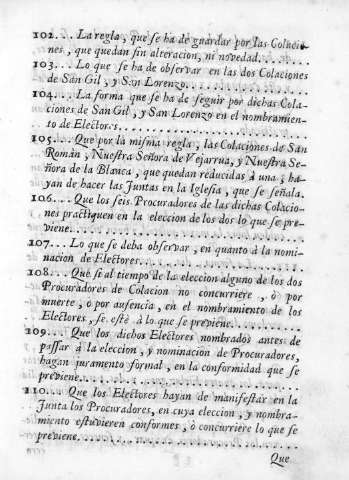 102... La regla, que se ha de guardar por las Colacio-
nes, que quedan sin alteracion, ni novedad...
103... Lo que se ha de observar en las dos Colaciones
de San Gil, y San Lorenzo...
104... La forma que se ha de seguir por dichas Cola-
ciones de San Gil, y San Lorenzo en el nombramien-
to de Electores...
105... Que por la misma regla, las Colaciones de San
Román, Nuestra Señora de Vejarrua, y Nuestra Se-
ñora de la Blanca, que quedan reducidas à una, ha-
yan de hacer las Juntas en la Iglesia, que se señala.
106... Que los seis Procuradores de las dichas Colacio-
nes practiquen en la eleccion de los dos lo que se pre-
viene...
107... Lo que se deba observar, en quanto à la nomi-
nacion de Electores...
108... Que si al tiempo de la eleccion alguno de los dos
Procuradores de Colacion no concurriere, ò por
muerte, ò por ausencia, en el nombramiento de los
Electores, se estè à lo que se previene...
109... Que los dichos Electores nombrados antes de
passar à la eleccion, y nominacion de Procuradores,
hagan juramento formal, en la conformidad que se
previene...
110... Que los Electores hayan de manifestar en la
Junta los Procuradores, en cuya eleccion, y nombra-
miento estuvieren conformes, ò concurriere lo que se
previene...
Que